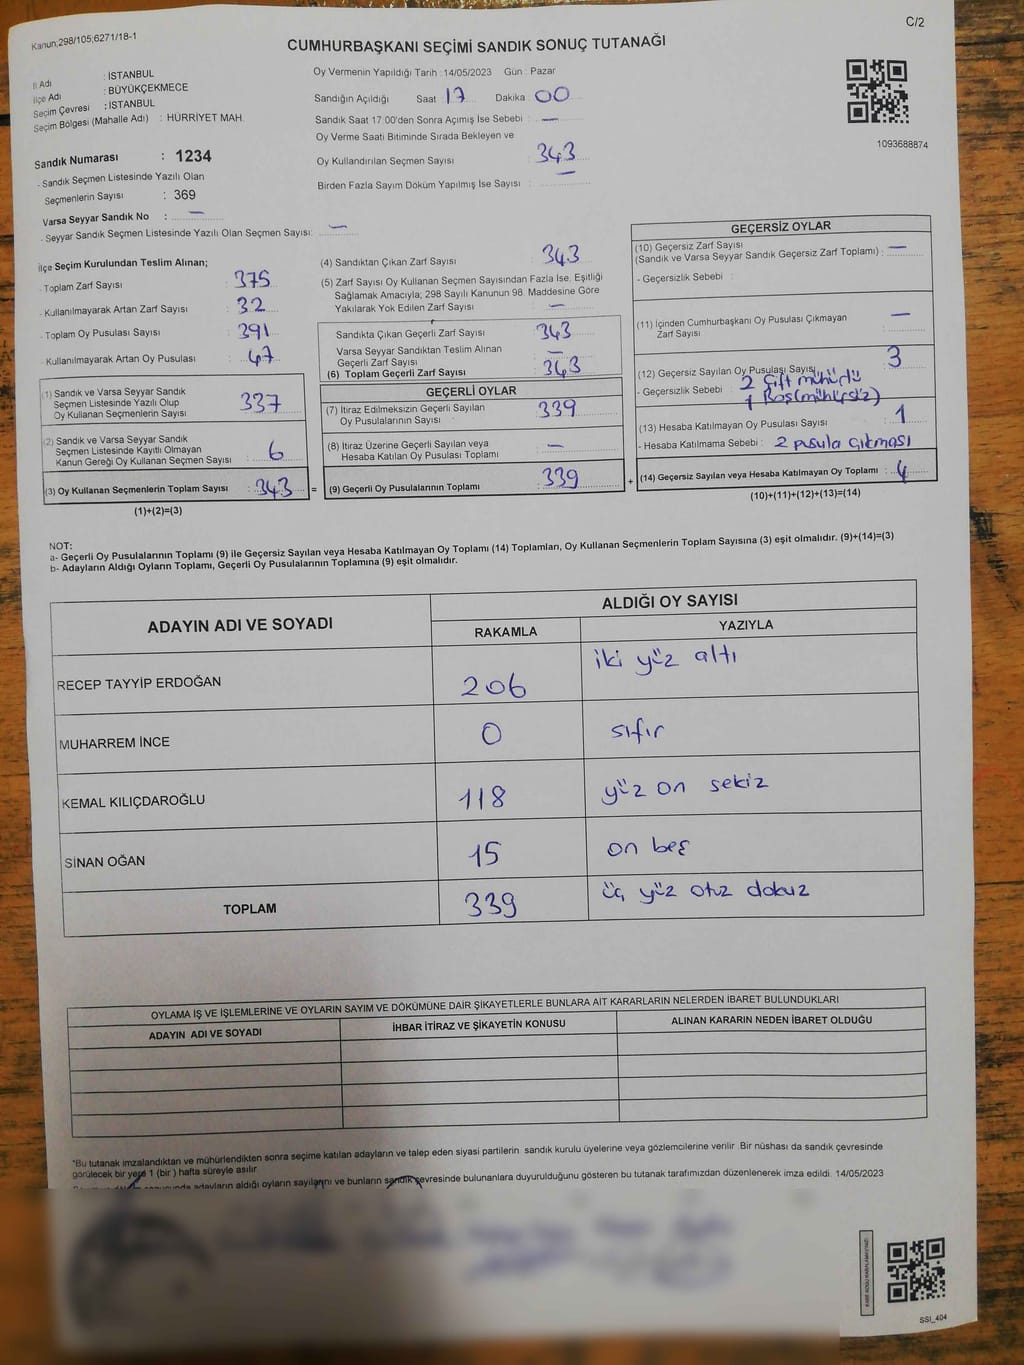 Kanun;298/105;6271/18-1
C/2
CUMHURBAŞKANI SEÇİMİ SANDIK SONUÇ TUTANAĞI
İl Adı : İSTANBUL
İlçe Adı : BÜYÜKÇEKMECE
Seçim Çevresi : İSTANBUL
Seçim Bölgesi (Mahalle Adı) : HÜRRİYET MAH.
Sandık Numarası : 1234
- Sandık Seçmen Listesinde Yazılı Olan
Seçmenlerin Sayısı : 369
Varsa Seyyar Sandık No : —
- Seyyar Sandık Seçmen Listesinde Yazılı Olan Seçmen Sayısı: —
Oy Vermenin Yapıldığı Tarih : 14/05/2023 Gün : Pazar
Sandığın Açıldığı Saat 17 Dakika 00
Sandık Saat 17:00'den Sonra Açımış İse Sebebi : —
Oy Verme Saati Bitiminde Sırada Bekleyen ve
Oy Kullandırılan Seçmen Sayısı 343
Birden Fazla Sayım Döküm Yapılmış İse Sayısı : —
1093688874
İlçe Seçim Kurulundan Teslim Alınan;
- Toplam Zarf Sayısı : 375
- Kullanılmayarak Artan Zarf Sayısı : 32
- Toplam Oy Pusulası Sayısı : 391
- Kullanılmayarak Artan Oy Pusulası : 47
(1) Sandık ve Varsa Seyyar Sandık
Seçmen Listesinde Yazılı Olup
Oy Kullanan Seçmenlerin Sayısı : 337
(2) Sandık ve Varsa Seyyar Sandık
Seçmen Listesinde Kayıtlı Olmayan
Kanun Gereği Oy Kullanan Seçmen Sayısı : 6
(3) Oy Kullanan Seçmenlerin Toplam Sayısı : 343 =
(1)+(2)=(3)
(4) Sandıktan Çıkan Zarf Sayısı : 343
(5) Zarf Sayısı Oy Kullanan Seçmen Sayısından Fazla İse, Eşitliği
Sağlamak Amacıyla; 298 Sayılı Kanunun 98. Maddesine Göre
Yakılarak Yok Edilen Zarf Sayısı : —
Sandıkta Çıkan Geçerli Zarf Sayısı : 343
Varsa Seyyar Sandıktan Teslim Alınan
Geçerli Zarf Sayısı : —
(6) Toplam Geçerli Zarf Sayısı : 343
GEÇERLİ OYLAR
(7) İtiraz Edilmeksizin Geçerli Sayılan
Oy Pusulalarının Sayısı : 339
(8) İtiraz Üzerine Geçerli Sayılan veya
Hesaba Katılan Oy Pusulası Toplamı : —
(9) Geçerli Oy Pusulalarının Toplamı : 339 +
GEÇERSİZ OYLAR
(10) Geçersiz Zarf Sayısı
(Sandık ve Varsa Seyyar Sandık Geçersiz Zarf Toplamı) : —
- Geçersizlik Sebebi :
(11) İçinden Cumhurbaşkanı Oy Pusulası Çıkmayan
Zarf Sayısı : —
(12) Geçersiz Sayılan Oy Pusulası Sayısı : 3
- Geçersizlik Sebebi : 2 Çift mühürlü
1 Boş(mühürsüz)
(13) Hesaba Katılmayan Oy Pusulası Sayısı : 1
- Hesaba Katılmama Sebebi : 2 pusula çıkması
(14) Geçersiz Sayılan veya Hesaba Katılmayan Oy Toplamı : 4
(10)+(11)+(12)+(13)=(14)
NOT:
a- Geçerli Oy Pusulalarının Toplamı (9) ile Geçersiz Sayılan veya Hesaba Katılmayan Oy Toplamı (14) Toplamları, Oy Kullanan Seçmenlerin Toplam Sayısına (3) eşit olmalıdır. (9)+(14)=(3)
b- Adayların Aldığı Oyların Toplamı, Geçerli Oy Pusulalarının Toplamına (9) eşit olmalıdır.
ADAYIN ADI VE SOYADI
ALDIĞI OY SAYISI
RAKAMLA YAZIYLA
RECEP TAYYİP ERDOĞAN 206 iki yüz altı
MUHARREM İNCE 0 sıfır
KEMAL KILIÇDAROĞLU 118 yüz on sekiz
SİNAN OĞAN 15 on beş
TOPLAM 339 üç yüz otuz dokuz
OYLAMA İŞ VE İŞLEMLERİNE VE OYLARIN SAYIM VE DÖKÜMÜNE DAİR ŞİKAYETLERLE BUNLARA AİT KARARLARIN NELERDEN İBARET BULUNDUKLARI
ADAYIN ADI VE SOYADI İHBAR İTİRAZ VE ŞİKAYETİN KONUSU ALINAN KARARIN NEDEN İBARET OLDUĞU
*Bu tutanak imzalandıktan ve mühürlendikten sonra seçime katılan adayların ve talep eden siyasi partilerin sandık kurulu üyelerine veya gözlemcilerine verilir .Bir nüshası da sandık çevresinde
görülecek bir yere 1 (bir ) hafta süreyle asılır.
adayların aldığı oyların sayılarını ve bunların sandık çevresinde bulunanlara duyurulduğunu gösteren bu tutanak tarafımızdan düzenlenerek imza edildi. 14/05/2023
SSI_404